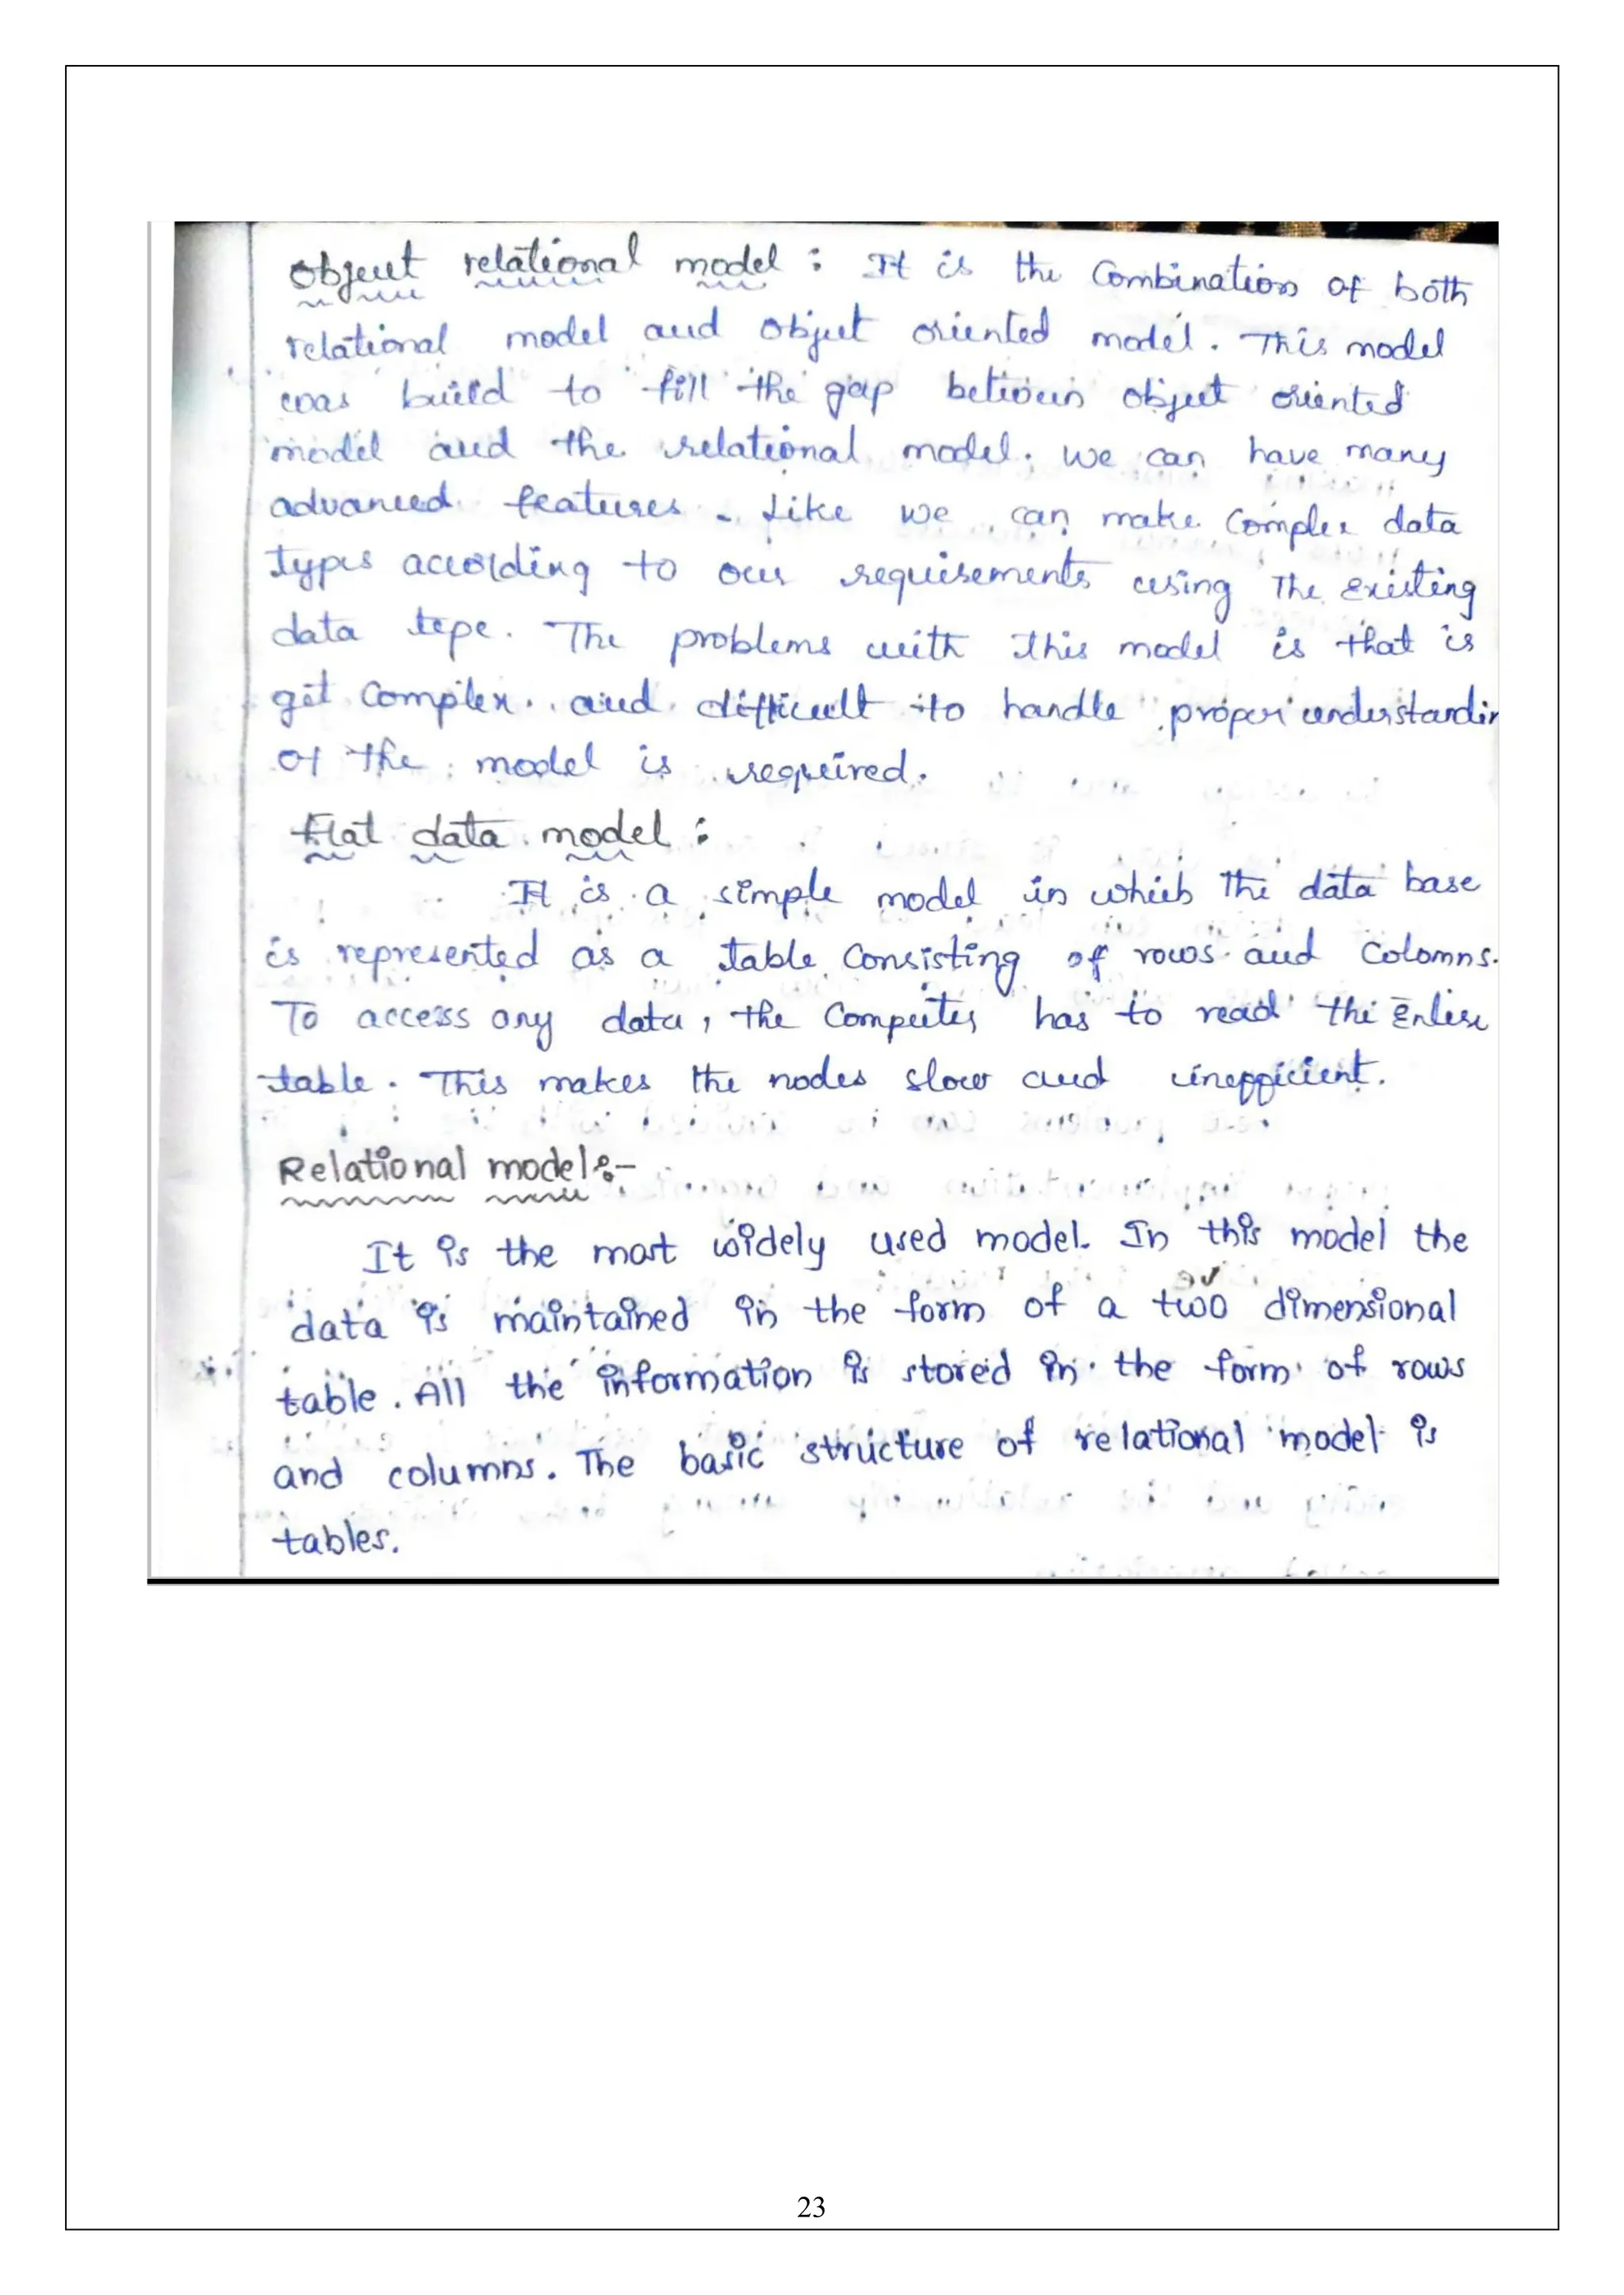 Object relational model : It is the Combination of both
relational model and object oriented model. This model
was build to fill the gap between object oriented
model and the relational model. we can have many
advanced features. Like we can make Complex data
types according to our requirements using The Existing
data type. The problems with this model is that is
get Complex. and difficult to handle proper understandin
of the model is required.
Flat data model :
It is a simple model in which The data base
is represented as a table Consisting of rows and Colomns.
To access any data, the Computer has to read the Entire
table. This makes the nodes slow and inefficient.
Relational model:-
It is the most widely used model. In this model the
data is maintained in the form of a two dimensional
table. All the information is stored in the form of rows
and columns. The basic structure of relational model is
tables.
23